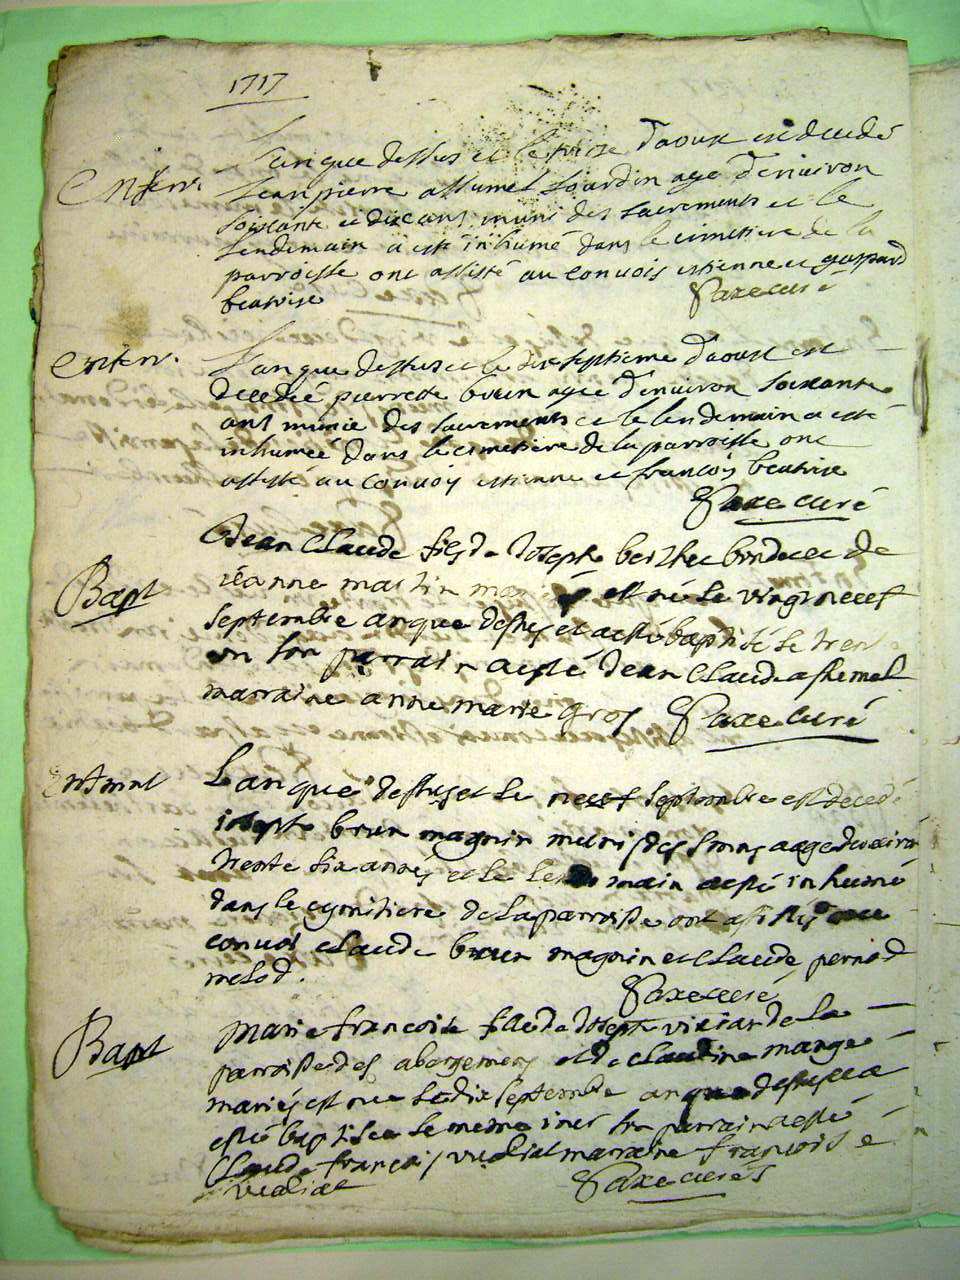 1717
Enterr.
L'an que dessus et le treise d'aoust est decedé
Jean pierre assumel Lourdin agé d'enuiron
soixante et dix ans muni des sacrements et le
lendemain a esté inhumé dans le cimetiere de la
parroisse ont assisté au convois estienne et gaspard
beatrise Paxe curé
Enterr.
L'an que dessus et le dix septieme d'aoust est
decedée pierrette brun agée d'enuiron soixante
ans munie des sacrements et le lendemain a esté
inhumée dans le cimetiere de la parroisse ont
assisté au convoy estienne et françois beatrise
Paxe curé
Bapt
Jean Claude fils de Joseph berthet et de
jeanne martin mariés est né le vingt neuf
septembre an que dessus et a esté baptisé le tren
un son parrain a esté Jean Claude assumel
marraine anne marie gros Paxe curé
L'an que dessus et le neuf septembre est decedé
joseph brun magnin muni des smns aagé d'environ
trente six années et le lendemain a esté inhumé
dans le cymitiere de la parroisse ont assistés au
convoi Claude brun magnin et Claude pernod
melod. Paxe curé
Bapt
Marie françoise fille de Joseph viviand de la
parroisse des abergemens et de Claudine mange
mariés est née le dix septembre an que dessus et a
esté baptisée le meme jour son parrain a esté
Claude françois vuaillat marraine françoise
vuaillat Paxe curé